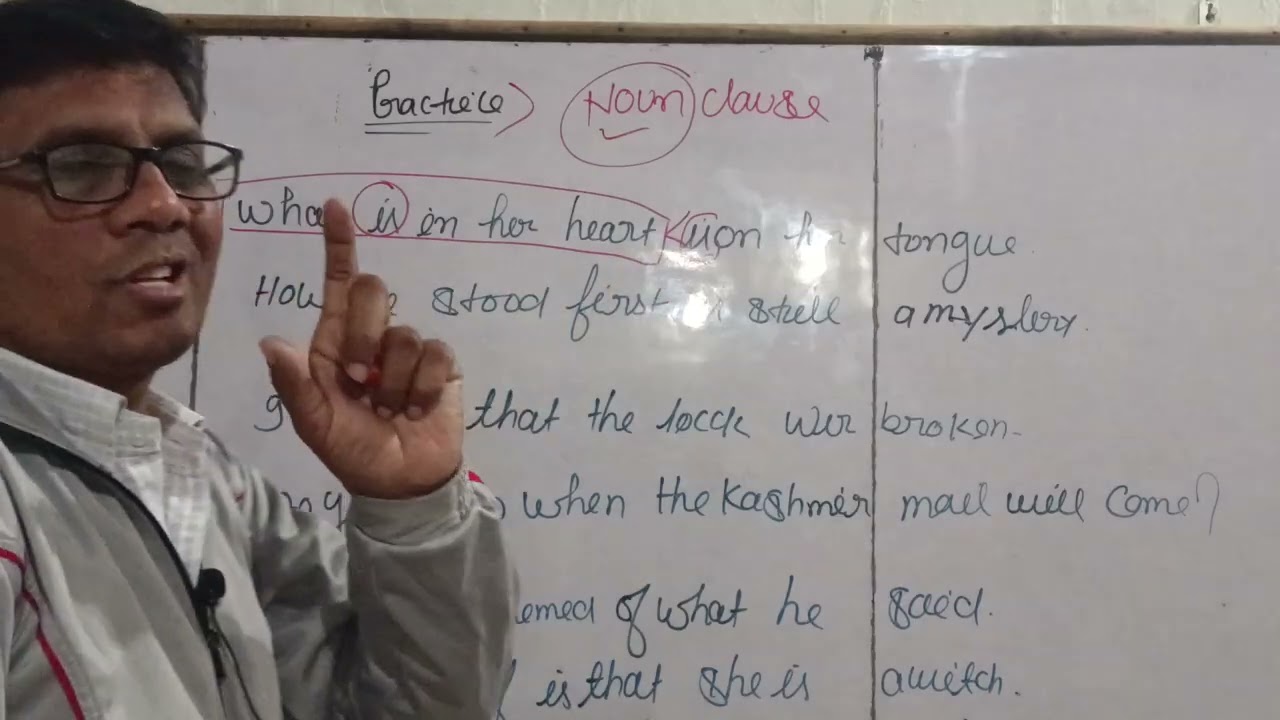 Practice > Noun clause
what is in her heart is on her tongue.
How he stood first is still a mystery.
that the lock was broken.
when the Kashmir mail will come?
of what he said.
is that she is a witch.